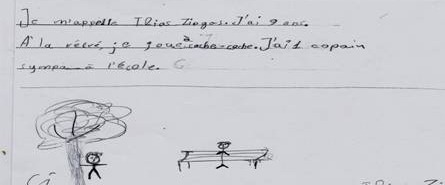 Je m'appelle Ilias Ziogos. J'ai 9 ans.
A la récré, je joue à cache-cache. J'ai 1 copain
sympa à l'école.